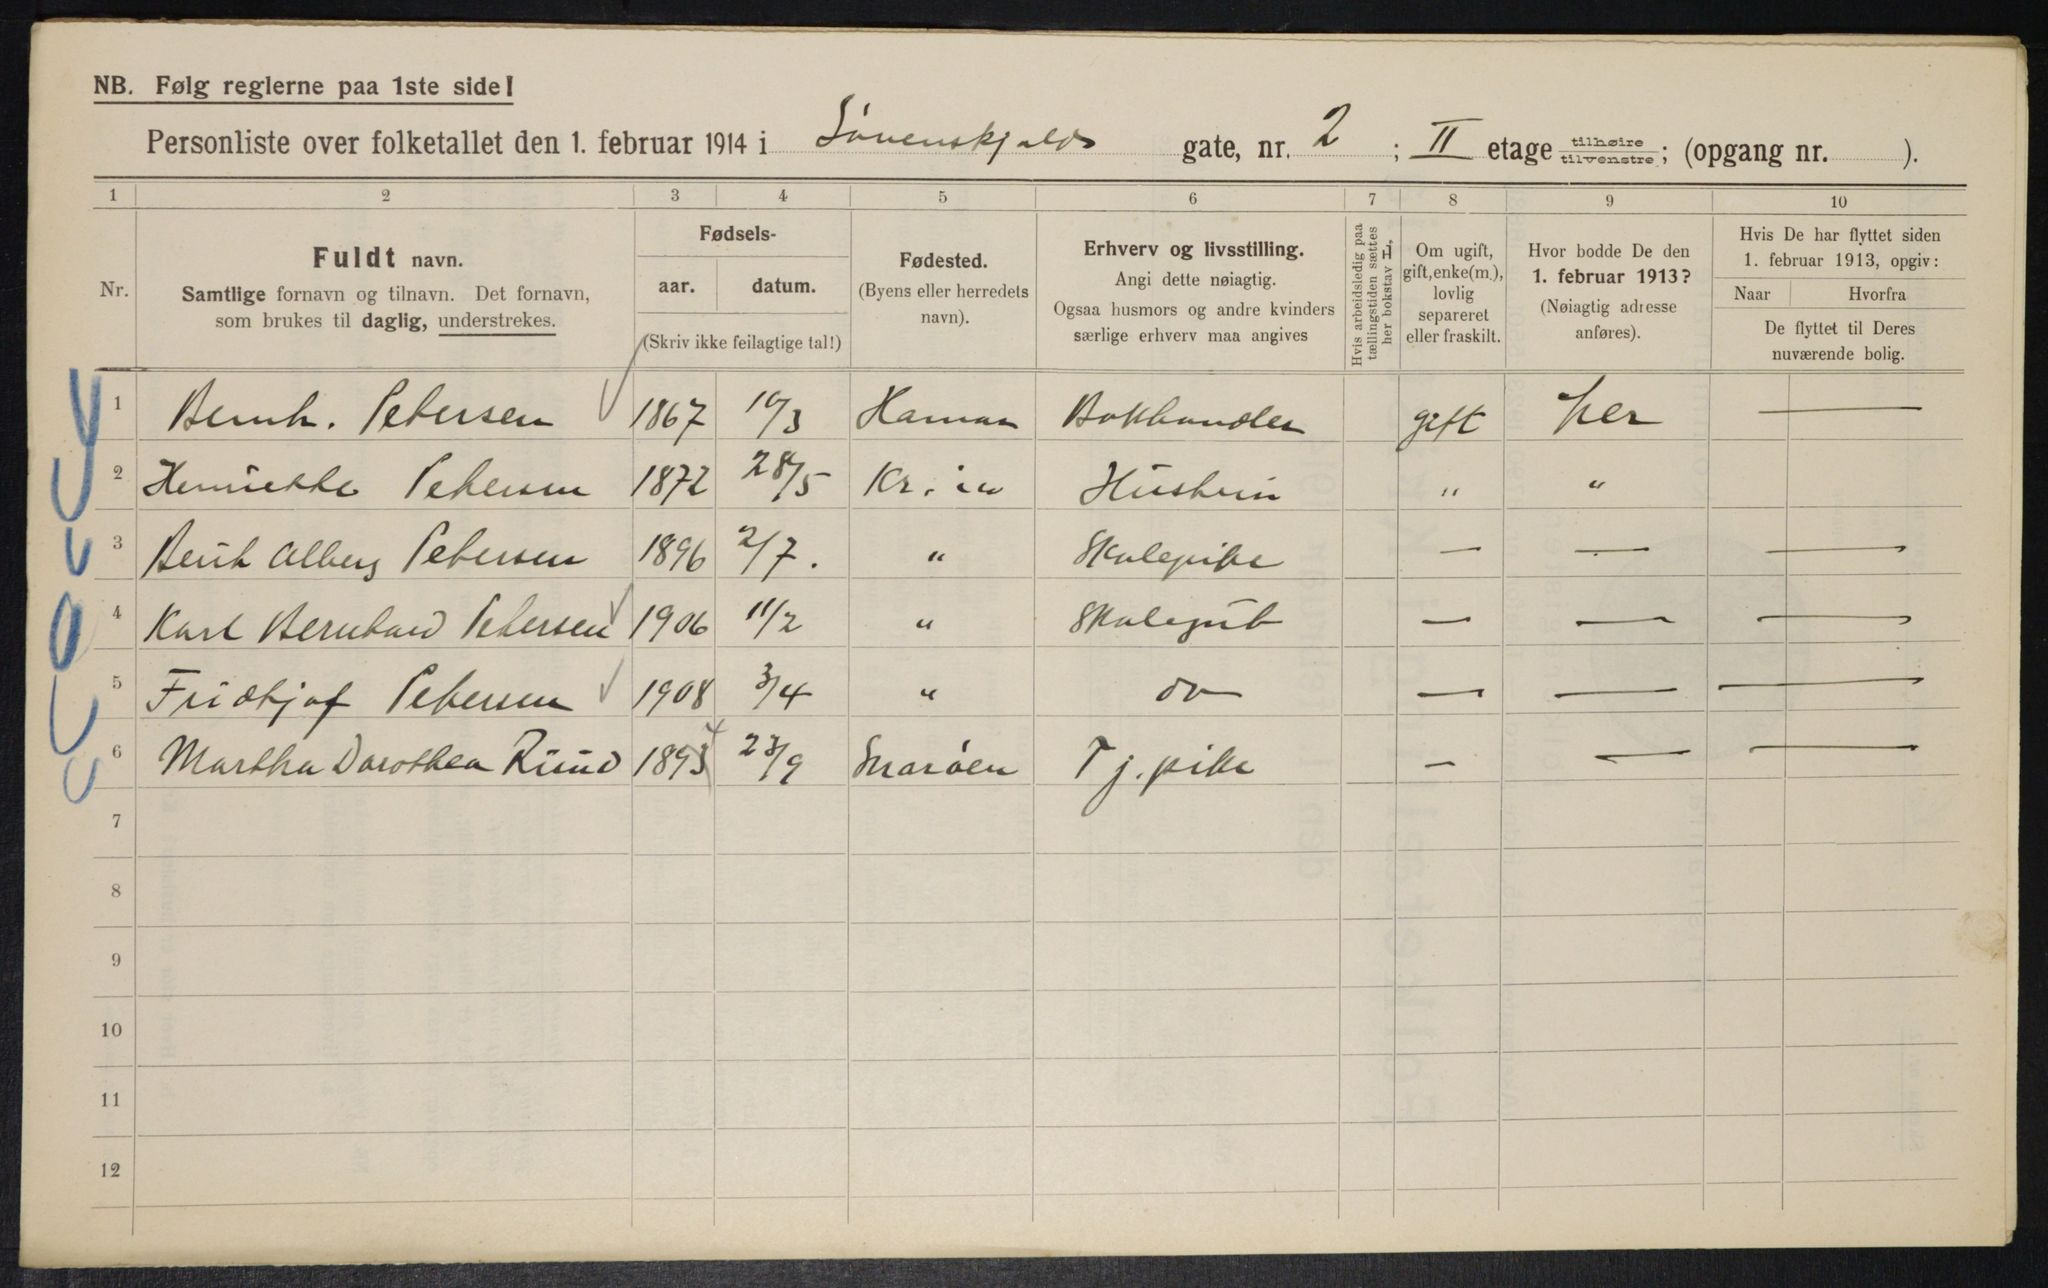 NB. Følg reglerne paa 1ste side!
Personliste over folketallet den 1. februar 1914 i Lövenskjolds gate, nr. 2 ; II etage tilhøire tilvenstre; (opgang nr. ).
1 2 3 4 5 6 7 8 9 10
Nr.
Fuldt navn.
Samtlige fornavn og tilnavn. Det fornavn,
som brukes til daglig, understrekes.
Fødsels-
aar. datum.
(Skriv ikke feilagtige tal!)
Fødested.
(Byens eller herredets
navn).
Erhverv og livsstilling.
Angi dette nøiagtig.
Ogsaa husmors og andre kvinders
særlige erhverv maa angives
Hvis arbeidsledig paa
tællingstiden sættes
her bokstav L,
Om ugift,
gift, enke(m.),
lovlig
separeret
eller fraskilt.
Hvor bodde De den
1. februar 1913?
(Nøiagtig adresse
anføres).
Hvis De har flyttet siden
1. februar 1913, opgiv:
Naar Hvorfra
De flyttet til Deres
nuværende bolig.
1 Bernh. Petersen 1867 10/3 Hamar Bokhandler gift her —
2 Henriette Petersen 1872 28/5 Kr.ia Hustru " "
3 Petersen 1896 2/7. " Skolepike — — —
4 Karl Bernhard Petersen 1906 11/2 " Skolegut — — —
5 Fridtjof Petersen 1908 3/4 " do — — —
6 Martha Dorothea Ruud 1893 4 23/9 Snarøen Tj. pike — — —
7
8
9
10
11
12